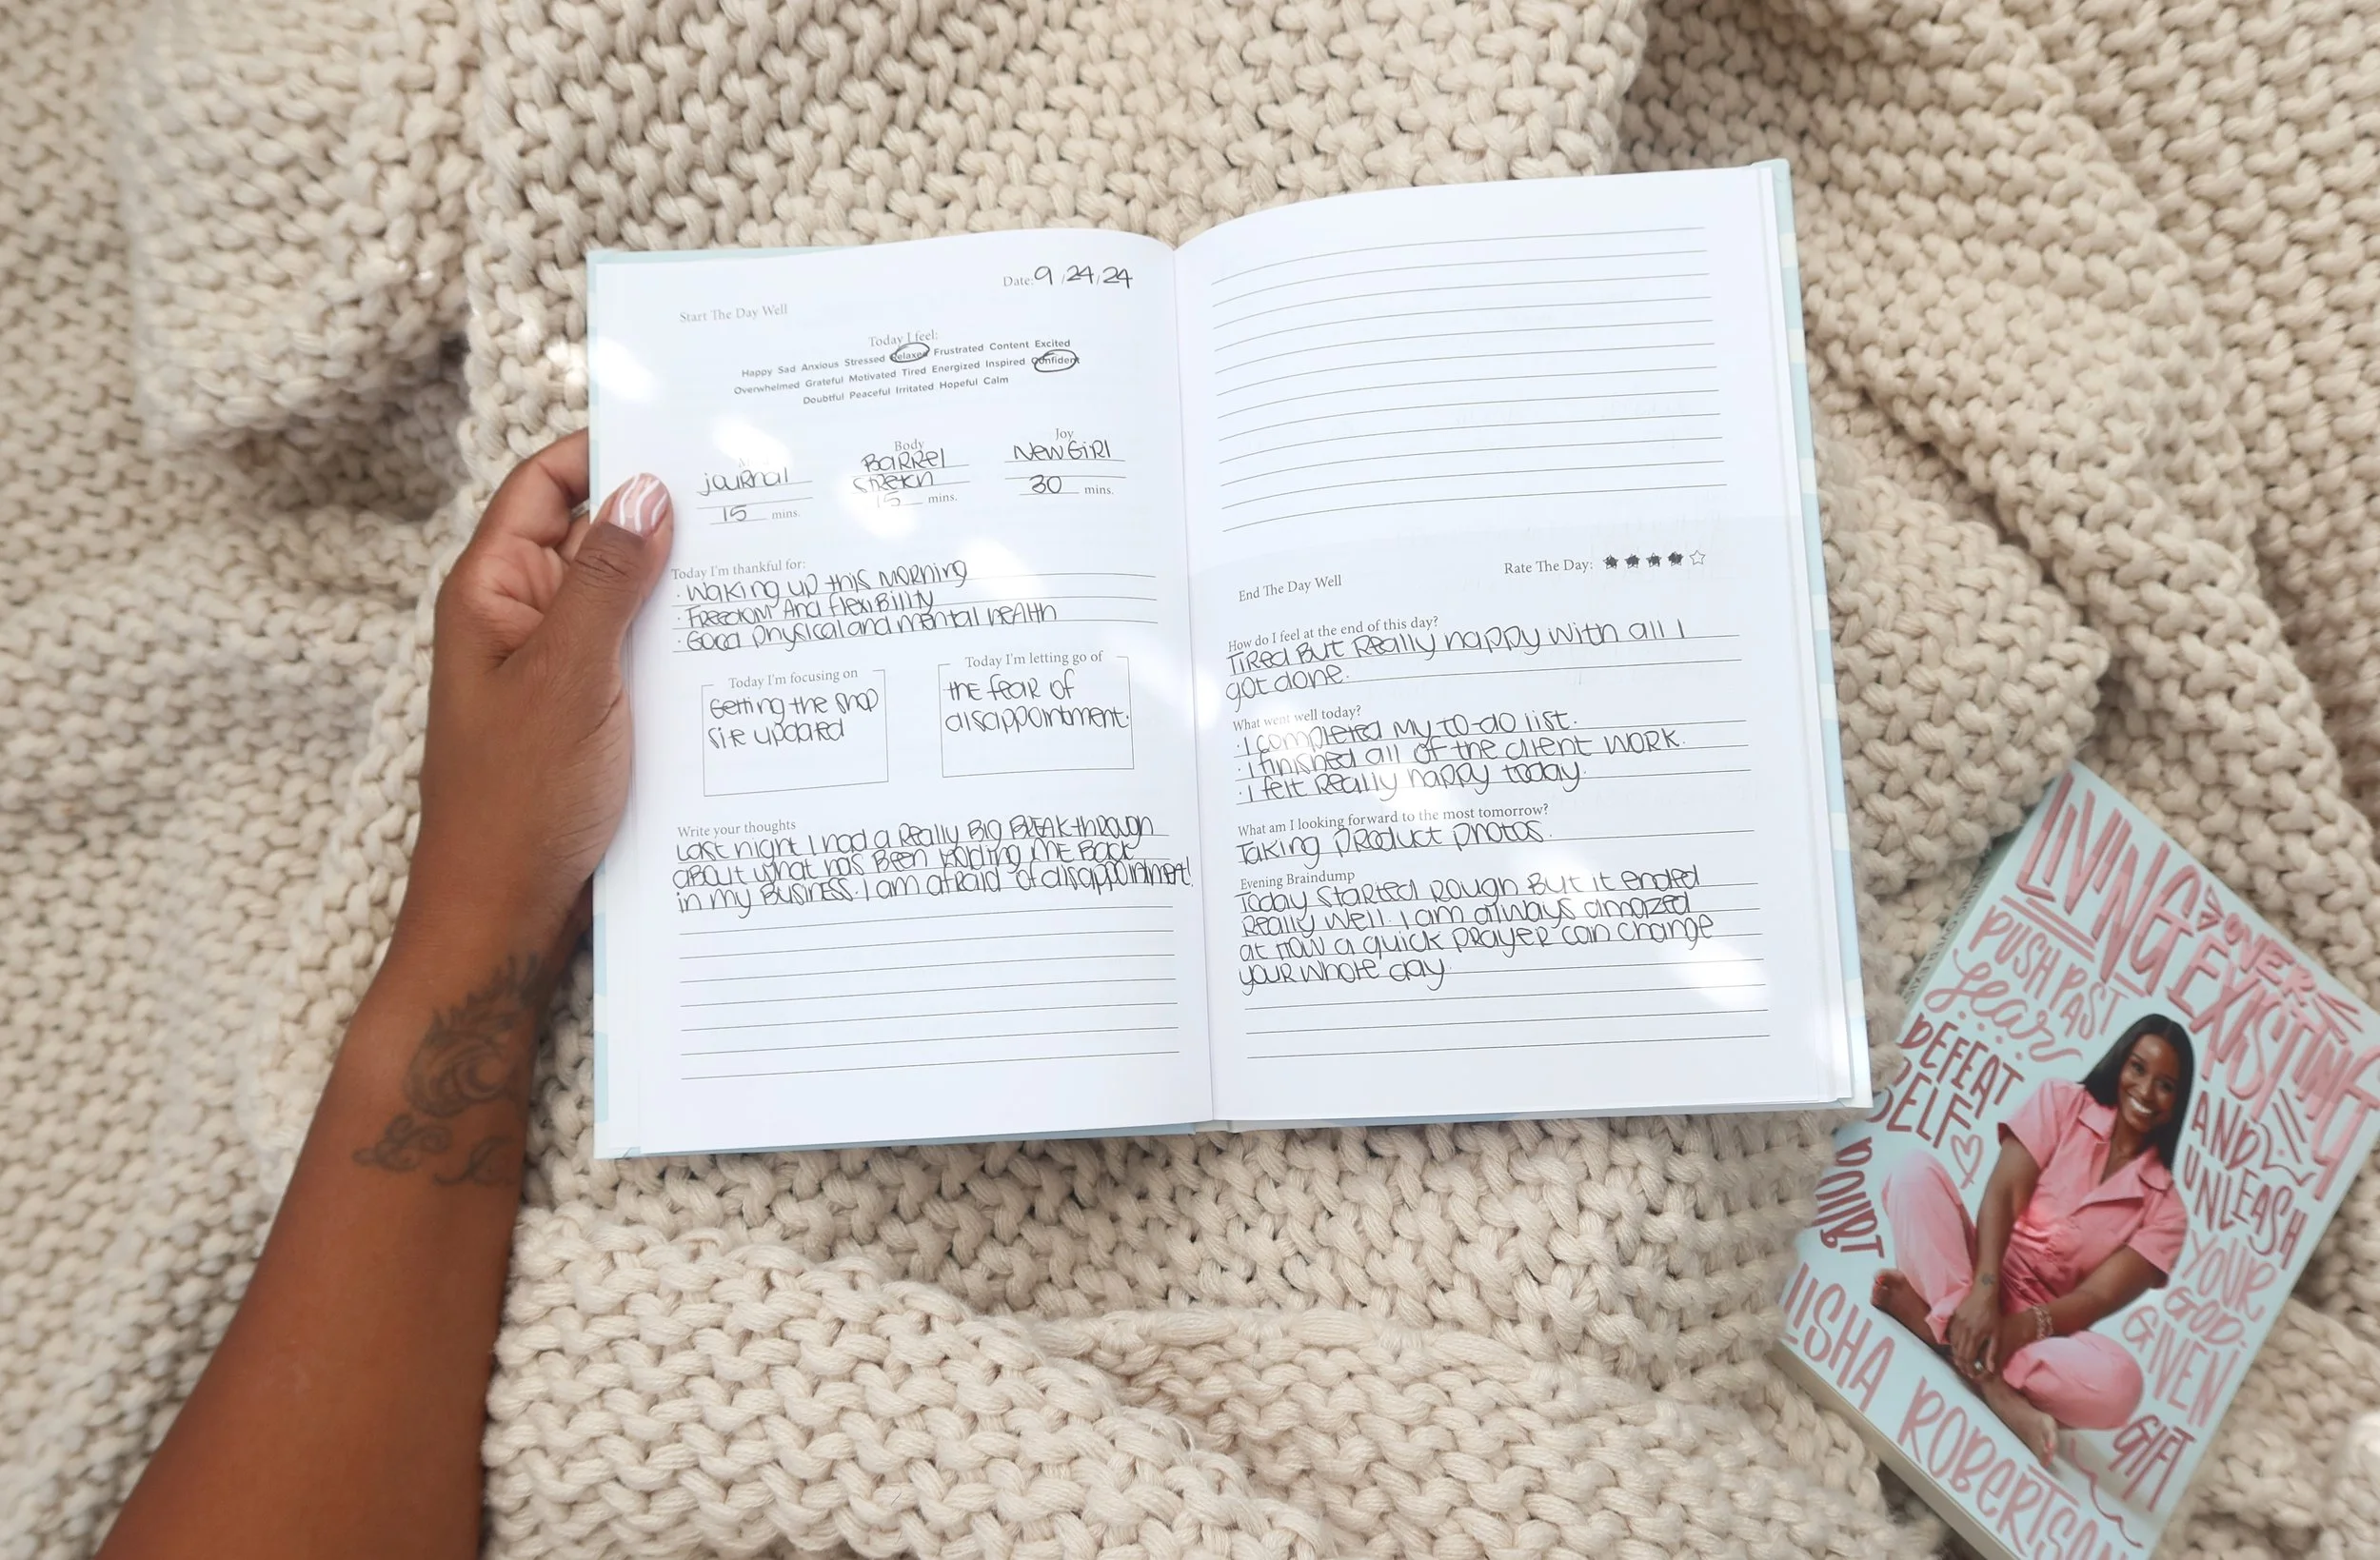 Date: 9/24/24
Start The Day Well
Today I feel:
Happy Sad Anxious Stressed Relaxed Frustrated Content Excited
Overwhelmed Grateful Motivated Tired Energized Inspired Confident
Doubtful Peaceful Irritated Hopeful Calm
journal
15 mins.
Body
Barrel
Stretch
15 mins.
Joy
New Girl
30 mins.
Today I'm thankful for:
· Waking up this morning
· Freedom and flexibility
· Good physical and mental health
Today I'm focusing on
Getting the shop
site updated
Today I'm letting go of
the fear of
disappointment.
Write your thoughts
Last night I had a really big breakthrough
about what has been holding me back
in my business. I am afraid of disappointment!
End The Day Well
Rate The Day:
How do I feel at the end of this day?
Tired but really happy with all I
got done.
What went well today?
· I completed my to-do list.
· I finished all of the client work.
· I felt really happy today.
What am I looking forward to the most tomorrow?
Taking product photos.
Evening Braindump
Today started rough but it ended
really well. I am always amazed
at how a quick prayer can change
your whole day.
LIVING
OVER
EXISTING
PUSH PAST
fear
DEFEAT
SELF
DOUBT
AND
UNLEASH
YOUR
GOD-
GIVEN
GIFT
ROBERTSON